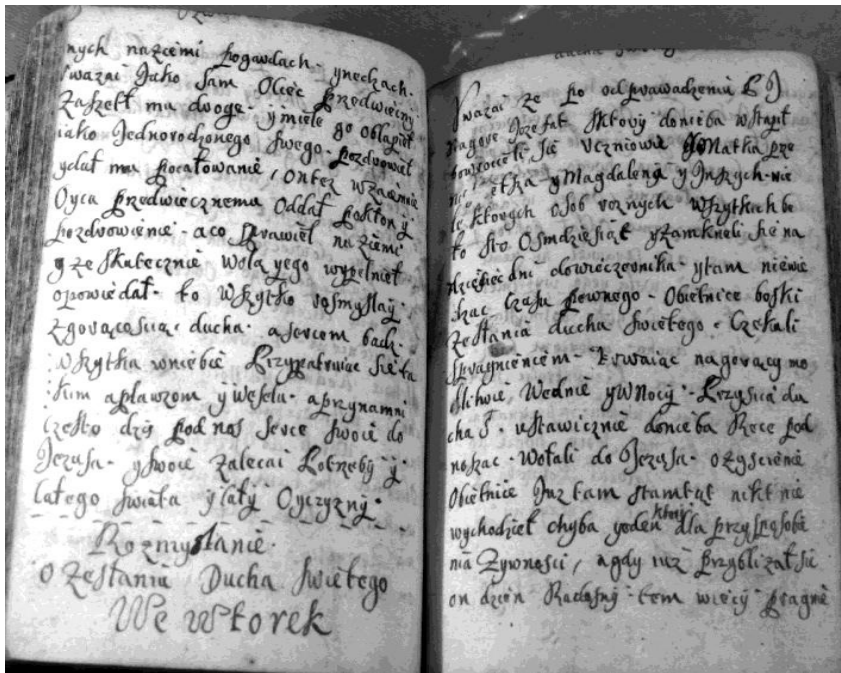 nych naziemi pogawdach. ynechach.
Vważai Jako sam Ociec Przedwieczny
Zaszełt mu droge. ymiele go obłapieł
iako Jednorodzonego swego. pozdrowieł
ydał mu pocałowanie, onteż wzaiemnie
Oyca przedwiecznemu oddał pokłon y
pozdrowienie. aco sprawieł naziemi
y że skutecznie wolą yego wypełnieł
opowiedał. to wszytko rosmyslay.
zgorącąscią. ducha. asercem bądz.
wszytka wniebie Przypatruiac sie ta
kim aplawzom y Weselu. aprzynamni
często dziś podnos serce swoie do
Jezusa. yswoie zalecai Potrzeby y
całego swiata ycałÿ Oyczyzny.
Rozmyslanie.
o Zesłaniu Ducha swietego
We wtorek
Vważai że po odprawadzeniu P J
nagore Jozefat sktory donieba wstąpił
powrocieli sie Uczniowie Matka prze
etka y Magdalena y Jnszych. nie
le ktorych osob roznych wszytkich be
to sto osmdziesiąt yzamkneli sie na
dziesiec dni dowieczernika. ytam niewie
dzac czasu pewnego. Obietnice boski
Zesłania ducha swietego. Czekali
spragnieniem. trwaiac nagorący mo
dlitwie Wednie y Wnocÿ. Przyscia du
cha S. vstawicznie donieba Rece pod
nosząc. Wołali do Jezusa. o zyscienie
Obietnice Juz tam stamtąt nikt nie
wychodzieł chyba yeden ktory dla przysposobie
nia Zywnosci, agdy iuz przyblizał sie
on dzien Radosny. tem wiecÿ pragne